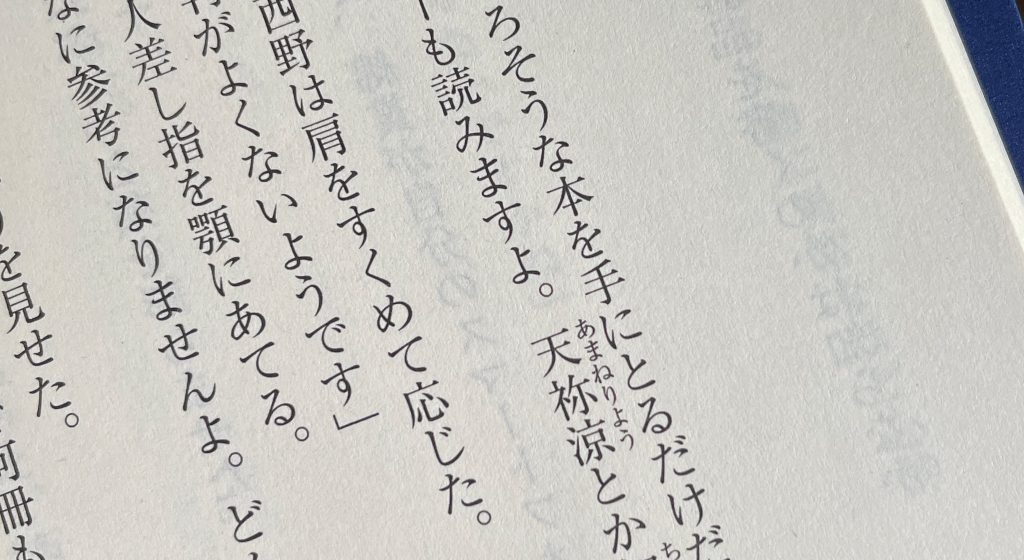 ろそうな本を手にとるだけだ
ーも読みますよ。天祢涼とか
あまねりよう
西野は肩をすくめて応じた。
がよくないようです」
人差し指を顎にあてる。
なに参考になりませんよ。ど
を見せた。
何冊も